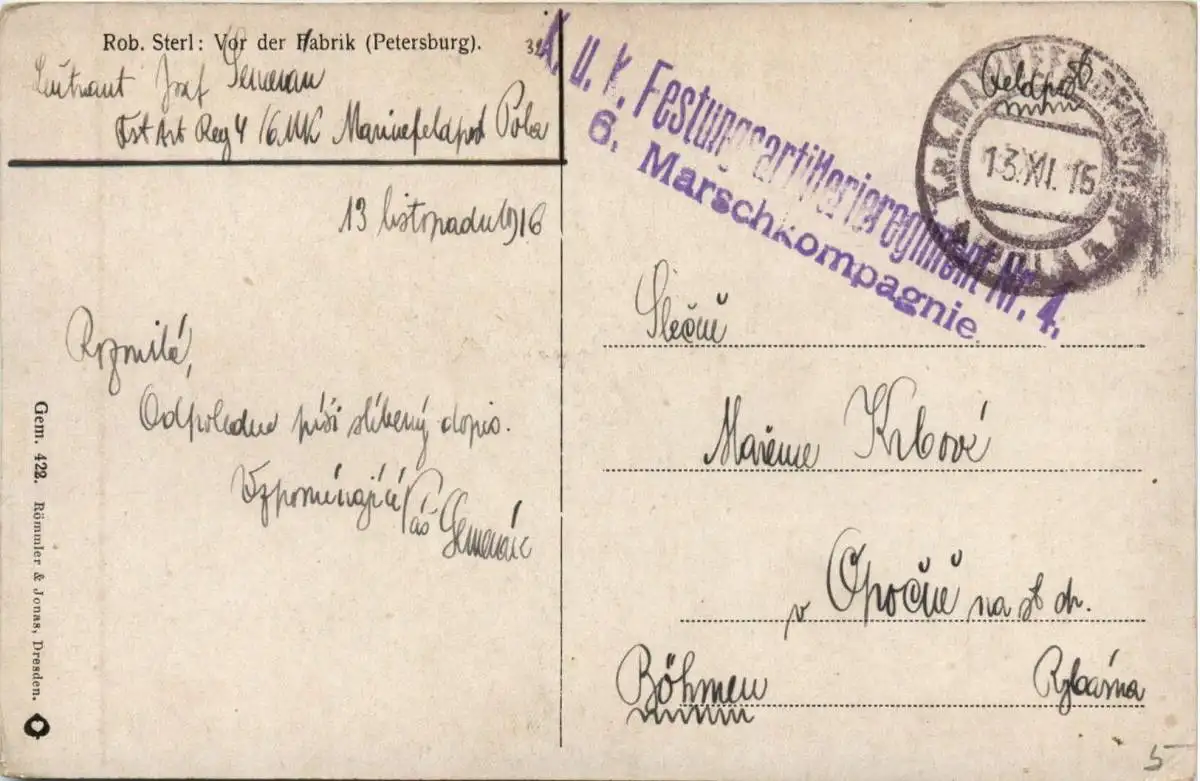 Rob. Sterl: Vor der Fabrik (Petersburg).
Leutnant Josef
Fst Art Reg 4 / 6. MK Marinefeldpost Pola
K. u. k. Festungsartillerieregiment Nr. 4.
6. Marschkompagnie.
Feldpost
13.XII.16
POLA
13 listopadu 1916
Rozmilá,
Odpoledne píši slíbený dopis.
Vzpomínající Váš
Slečně
Mařence Krbové
v Opočně na st dr.
Böhmen Rybárna
Gem. 422. Römmler & Jonas, Dresden.
5